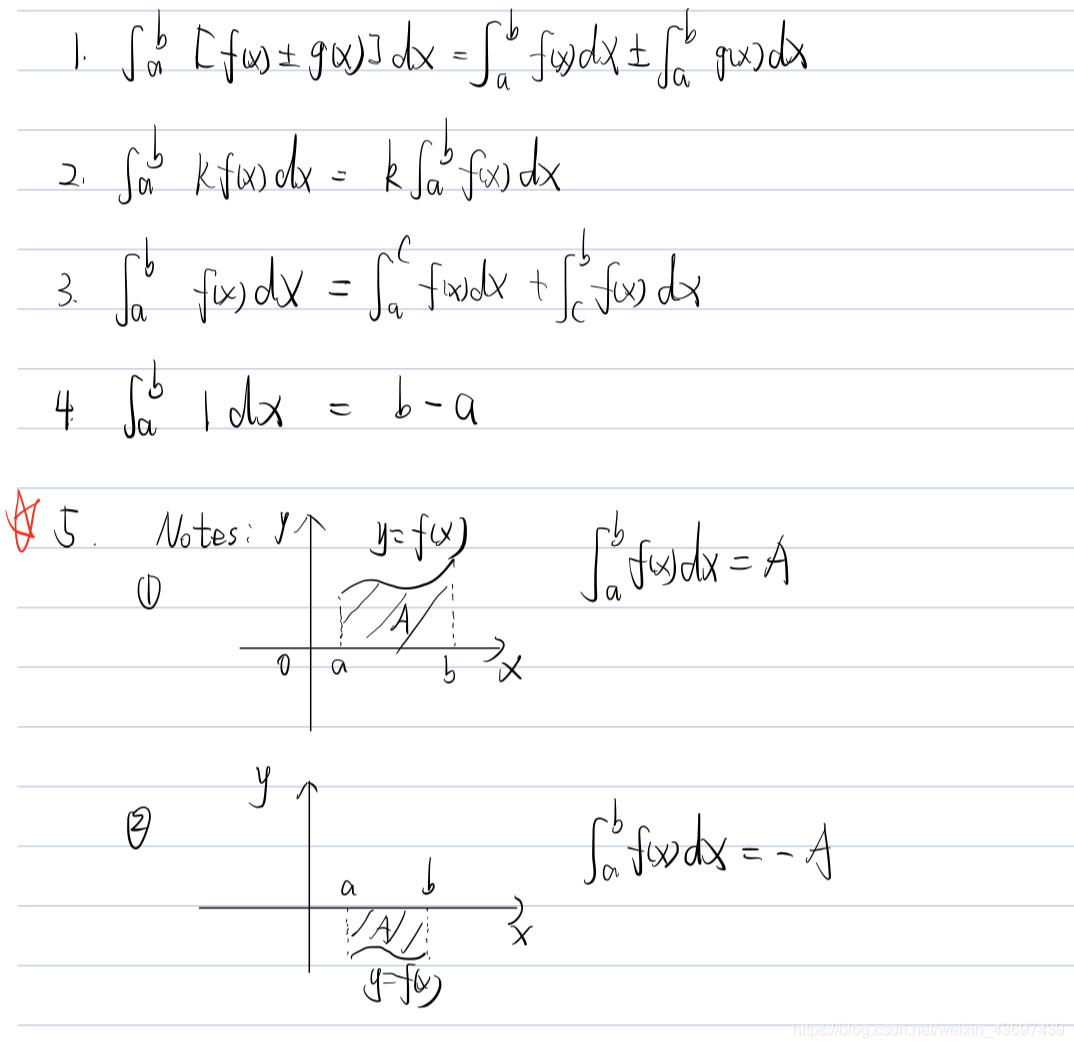 1. ∫ₐᵇ [f(x) ± g(x)] dx = ∫ₐᵇ f(x)dx ± ∫ₐᵇ g(x)dx
2. ∫ₐᵇ kf(x)dx = k∫ₐᵇ f(x)dx
3. ∫_a^b f(x)dx = ∫_a^c f(x)dx + ∫_c^b f(x)dx
4. ∫ₐᵇ 1dx = b-a
5. Notes:
①
y
y=f(x)
A
0 a b x
∫ₐᵇ f(x)dx = A
②
y
a b
x
A
y=f(x)
∫ₐᵇ f(x)dx = -A
https://blog.csdn.net/weixin_43697439